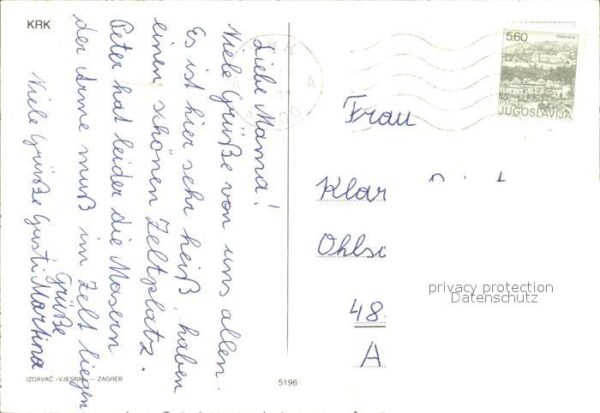 KRK
Liebe Mama!
Viele Grüße von uns allen.
Es ist hier sehr heiß, haben
einen schönen Zeltplatz.
Peter hat leider die Masern
der Arme muß im Zelt liegen
Grüße
Viele Grüße Gusti Martina
5.60
TRAVNIK
JUGOSLAVIJA
Frau
Klar
Ohls
48
A
privacy protection
Datenschutz
IZDAVAČ »VJESNIK« — ZAGREB
5196